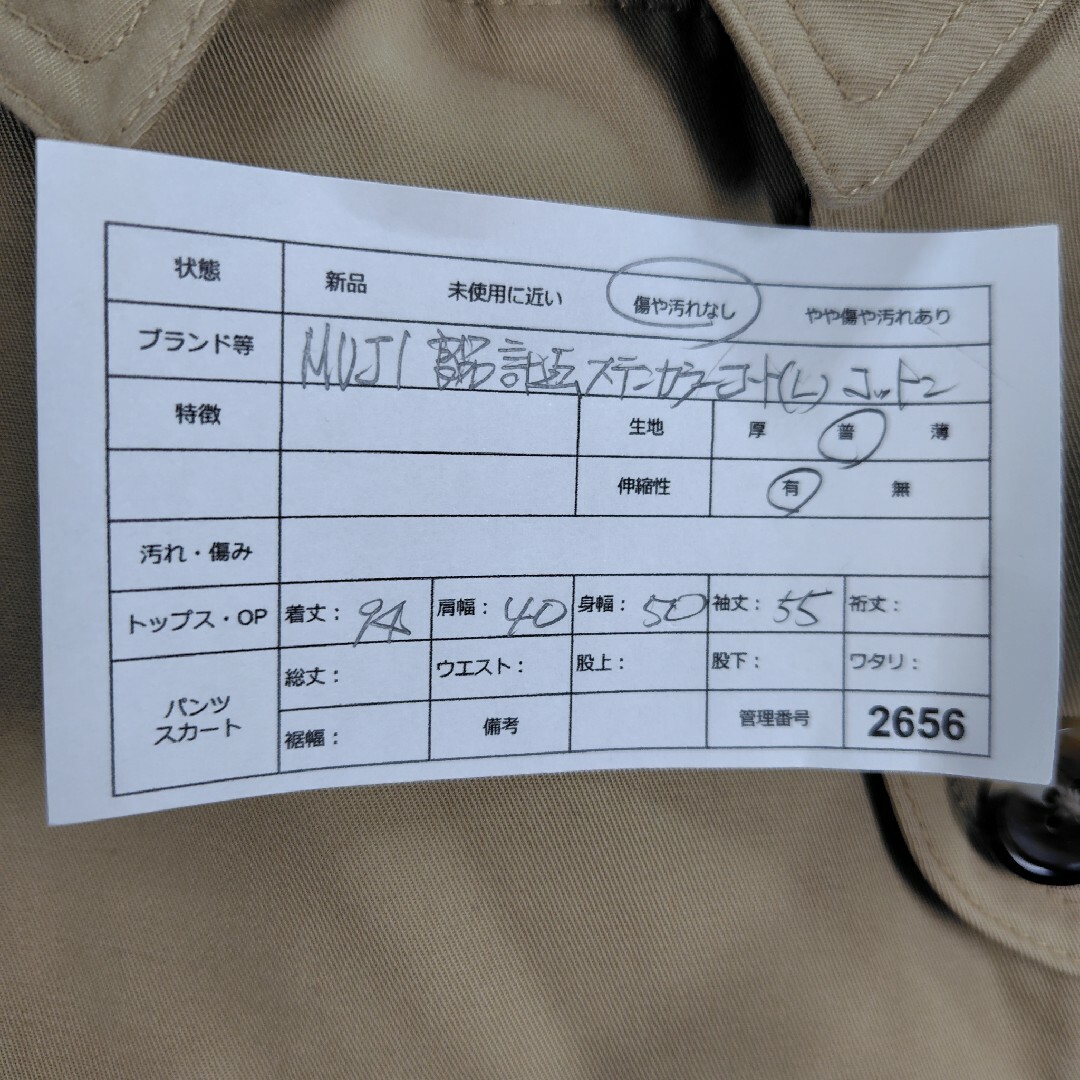 状態 新品 未使用に近い 傷や汚れなし やや傷や汚れあり
ブランド等 MUJI ステンカラーコート(L) コットン
特徴 生地 厚 普 薄
伸縮性 有 無
汚れ・傷み
トップス・OP 着丈: 94 肩幅: 40 身幅: 50 袖丈: 55 裄丈:
パンツ スカート 総丈: ウエスト: 股上: 股下: ワタリ:
裾幅: 備考 管理番号 2656